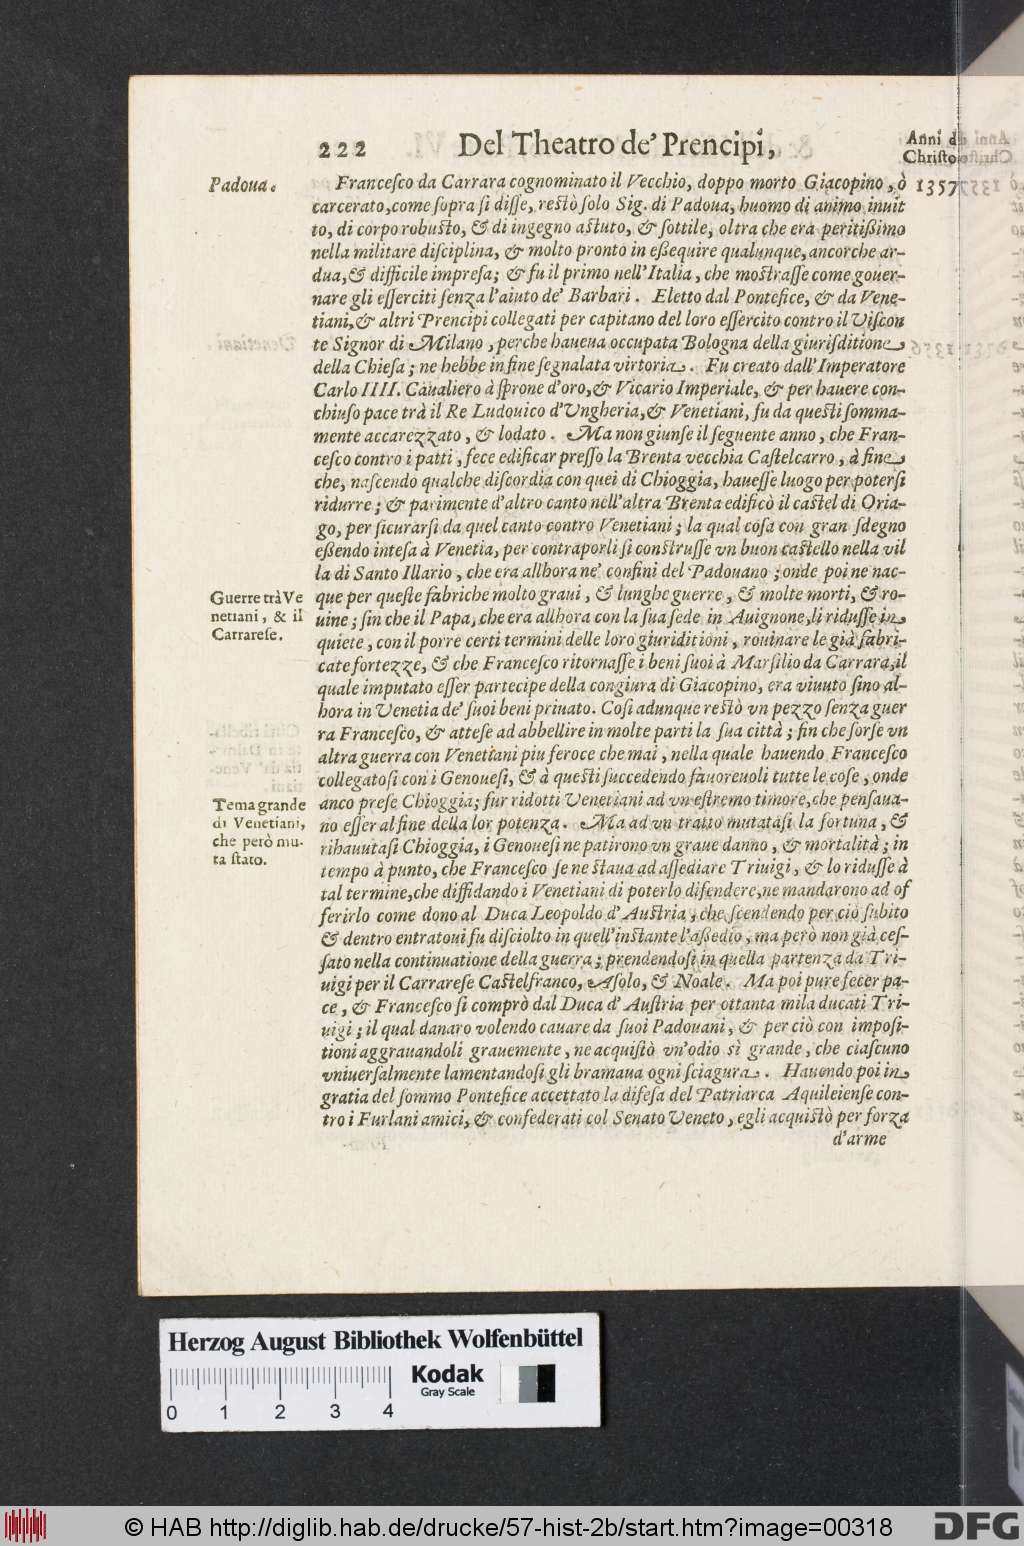 222 Del Theatro de' Prencipi,
Anni di
Christo
Padoua.
1357
Franceſco da Carrara cognominato il Vecchio, doppo morto Giacopino, ò
carcerato, come ſopra ſi diſſe, reſtò ſolo Sig. di Padoua, huomo di animo inuit
to, di corpo robuſto, & di ingegno aſtuto, & ſottile, oltra che era peritißimo
nella militare diſciplina, & molto pronto in eßequire qualunque, ancorche ar-
dua, & difficile impreſa; & fu il primo nell'Italia, che moſtraſſe come gouer-
nare gli eſſerciti ſenza l'aiuto de' Barbari. Eletto dal Pontefice, & da Vene-
tiani, & altri Prencipi collegati per capitano del loro eſſercito contro il Viſcon
te Signor di Milano, perche haueua occupata Bologna della giuriſditione
della Chieſa; ne hebbe in fine ſegnalata virtoria. Fu creato dall'Imperatore
Carlo IIII. Caualiero à ſprone d'oro, & Vicario Imperiale, & per hauere con-
chiuſo pace trà il Re Ludouico d'Vngheria, & Venetiani, fu da queſti ſomma-
mente accarezzato, & lodato. Ma non giunſe il ſeguente anno, che Fran-
ceſco contro i patti, fece edificar preſſo la Brenta vecchia Caſtelcarro, à fine
che, naſcendo qualche diſcordia con quei di Chioggia, haueſſe luogo per poterſi
ridurre; & parimente d'altro canto nell'altra Brenta edificò il caſtel di Oria-
go, per ſicurarſi da quel canto contro Venetiani; la qual coſa con gran ſdegno
eßendo inteſa à Venetia, per contraporli ſi conſtruſſe vn buon caſtello nella vil
la di Santo Illario, che era allhora ne' confini del Padouano; onde poi ne nac-
que per queſte fabriche molto graui, & lunghe guerre, & molte morti, & ro-
uine; ſin che il Papa, che era allhora con la ſua ſede in Auignone, li riduſſe in
quiete, con il porre certi termini delle loro giuriditioni, rouinare le già fabri-
cate fortezze, & che Franceſco ritornaſſe i beni ſuoi à Marſilio da Carrara, il
quale imputato eſſer partecipe della congiura di Giacopino, era viuuto ſino al-
hora in Venetia de' ſuoi beni priuato. Coſi adunque reſtò vn pezzo ſenza guer
ra Franceſco, & atteſe ad abbellire in molte parti la ſua città; fin che ſorſe vn
altra guerra con Venetiani piu feroce che mai, nella quale hauendo Franceſco
collegatoſi con i Genoueſi, & à queſti ſuccedendo fauoreuoli tutte le coſe, onde
anco preſe Chioggia; fur ridotti Venetiani ad vn eſtremo timore, che penſaua-
no eſſer al fine della lor potenza. Ma ad vn tratto mutataſi la fortuna, &
rihauutaſi Chioggia, i Genoueſi ne patirono vn graue danno, & mortalità; in
tempo à punto, che Franceſco ſe ne ſtaua ad aſſediare Triuigi, & lo riduſſe à
tal termine, che diffidando i Venetiani di poterlo difendere, ne mandarono ad of
ferirlo come dono al Duca Leopoldo d' Auſtria, che ſcendendo per ciò ſubito
& dentro entratoui fu diſciolto in quell'inſtante l'aßedio, ma però non già ceſ-
ſato nella continuatione della guerra; prendendoſi in quella partenza da Tri-
uigi per il Carrareſe Caſtelfranco, Aſolo, & Noale. Ma poi pure fecer pa-
ce, & Franceſco ſi comprò dal Duca d' Auſtria per ottanta mila ducati Tri-
uigi; il qual danaro volendo cauare da ſuoi Padouani, & per ciò con impoſi-
tioni aggrauandoli grauemente, ne acquiſtò vn'odio sì grande, che ciaſcuno
vniuerſalmente lamentandoſi gli bramaua ogni ſciagura. Hauendo poi in
gratia del ſommo Pontefice accettato la difeſa del Patriarca Aquileienſe con-
tro i Furlani amici, & confederati col Senato Veneto, egli acquiſtò per forza
d'arme
Guerre trà Ve
netiani, & il
Carrareſe.
Tema grande
di Venetiani,
che però mu-
ta ſtato.
Herzog August Bibliothek Wolfenbüttel
Kodak
Gray Scale
0 1 2 3 4
© HAB http://diglib.hab.de/drucke/57-hist-2b/start.htm?image=00318
DFG